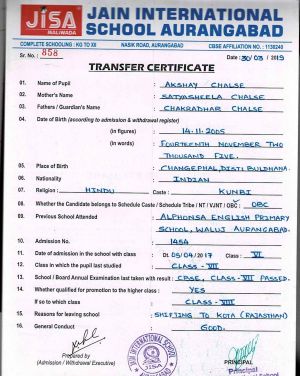 JISA
NALIWADA
JAIN INTERNATIONAL
SCHOOL AURANGABAD
COMPLETE SCHOOLING : KG TO XII NASIK ROAD, AURANGABAD CBSE AFFILIATION NO. : 1130240
Sr. No.: 858 Date: 30/03/2019
TRANSFER CERTIFICATE
01. Name of Pupil : AKSHAY CHALSE
02. Mother's Name : SATYASHEELA CHALSE
03. Fathers / Guardian's Name : CHAKRADHAR CHALSE
04. Date of Birth (according to admission & withdrawal register)
(in figures) : 14-11-2005
(in words) : FOURTEENTH NOVEMBER TWO
THOUSAND FIVE.
05. Place of Birth : CHANGEPHAL, DIST. BULDHANA.
06. Nationality : INDIAN
07. Religion : HINDU Caste : KUNBI
08. Whether the Candidate belongs to Schedule Caste / Schedule Tribe / NT / VJNT / OBC : OBC
09. Previous School Attended : ALPHONSA ENGLISH PRIMARY
SCHOOL, WALUJ AURANGABAD.
10. Admission No. : 1454
11. Date of admission in the school with class : Dt. 05/04/2017 Class : VI
12. Class in which the pupil last studied : CLASS - VII
13. School / Board Annual Examination last taken with result : CBSE, CLASS-VII PASSED.
14. Whether qualified for promotion to the higher class : YES
If so to which class : CLASS - VIII
15. Reasons for leaving school : SHIFTING TO KOTA (RAJASTHAN)
16. General Conduct : GOOD.
Prepared by
(Admission / Withdrawal Executive)
INTERNATIONAL SCHOOL
JISA
PRINCIPAL
Principal